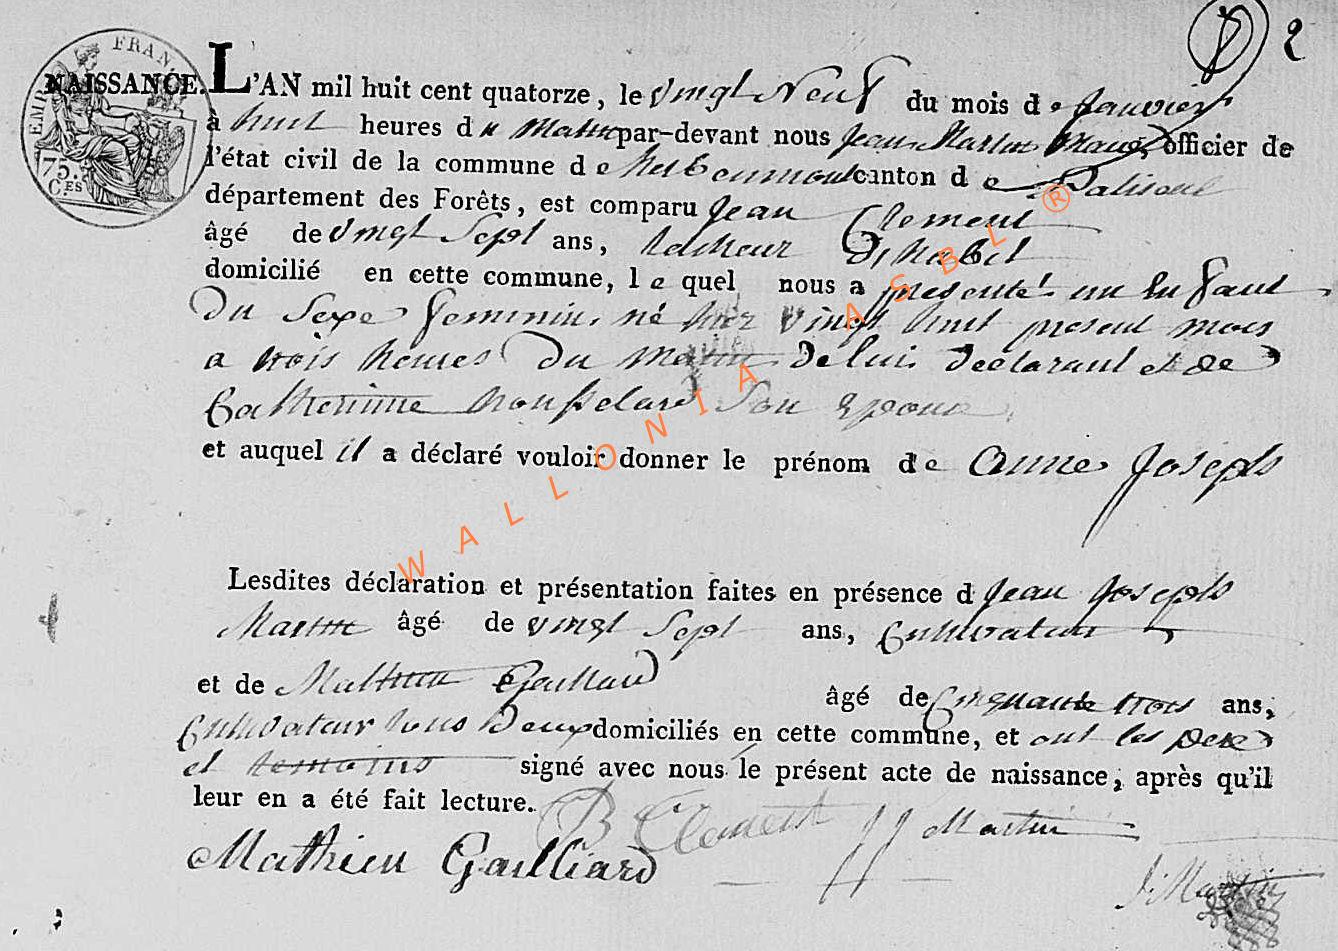 2
EMP FRAN
75.
C.ES
NAISSANCE. L'AN mil huit cent quatorze, le vingt Neuf du mois de Janvier
à huit heures du Matin par-devant nous Jean Martin officier de
l'état civil de la commune de herbeumont canton de Paliseul
département des Forêts, est comparu Jean Clement
âgé de vingt Sept ans, D, habit
domicilié en cette commune, le quel nous a presenté un Enfant
Du Sexe feminin, né hier vingt huit present mois
a trois heures Du matin De lui Declarant et de
Catherinne Son Epouse
et auquel il a déclaré vouloir donner le prénom de anne Joseph
Lesdites déclaration et présentation faites en présence d Jean Joseph
Martin âgé de vingt Sept ans, Cultivateur
et de Mathieu Gaillard âgé de Cinquante trois ans,
Cultivateur tous Deux domiciliés en cette commune, et ont les pere
et temoins signé avec nous le présent acte de naissance, après qu'il
leur en a été fait lecture.
Clement JJ Martin
Mathieu Gailliard
J: Martin
WALLONIA ASBL ®